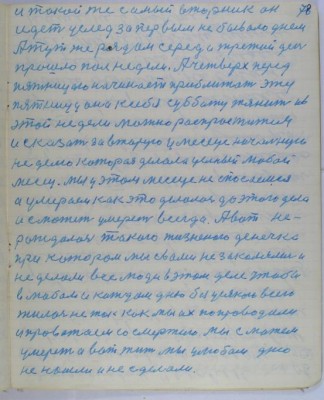 и такой же самый вторник он 78
идет услед за первым не бывало днем
А тут же рядом середа третий ден
прошло пол недели. А четверх перед
пятницаю начинает приближат эту
пятницу она к себя субботу тянит на
этой недели можно распроститем
и сказат за вторую у месеце началную
неделю которая делала целый мабой
месец. мы у этом месеце не споселися
а умераем как это делалос до этого дела
и сможет умерет всегда. А вот не-
рождалос такого жизненого денечка
при котором мы свами не закалялис и
не делали все люди в этом деле чтобы
в любом и каждом дню без усякого всего
жилос не так как мы их попроводили
и провожаем со смертию. мы сможем
умерет а вот жит мы у любом дню
не нашли и не сделали.